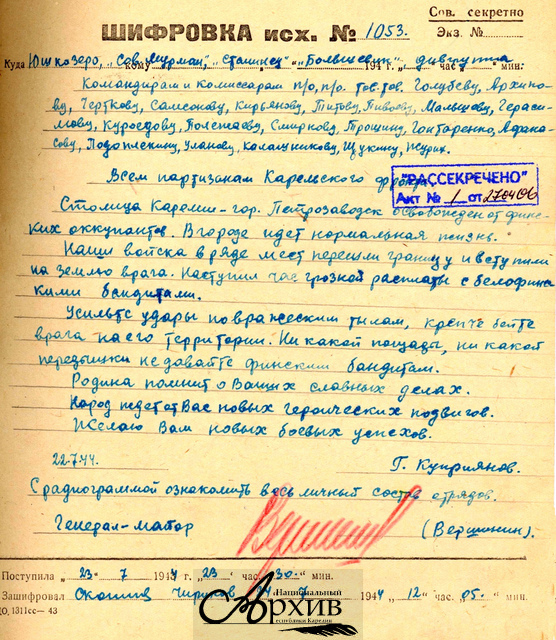 Сов. секретно
ШИФРОВКА исх. № 1053.
Экз. №
Куда Юшкозеро, „Сов. Мурман", „Сталинец" „Большевик"
кому 194 г. „ “ час. мин.
Командирам и комиссарам п/о, п/о. тов. тов. Голубеву, Архипо-
ву, Черткову, Самсонову, Кирьянову, Титову, Пивоеву, Малышеву, Гераси-
мову, Куроедову, Полетаеву, Смирнову, Трошину, Гонтаренко, Афана-
сову, Подоплекину, Уланову, Калашникову, Щукину, Журих.
Всем партизанам Карельского фронта
"РАССЕКРЕЧЕНО"
Акт № 1 от 270406
Столица Карелии – гор. Петрозаводск освобожден от финс-
ких оккупантов. В городе идет нормальная жизнь.
Наши войска в ряде мест перешли границу и вступили
на землю врага. Наступил час грозной расплаты с белофинс-
кими бандитами.
Усильте удары по вражеским тылам, крепче бейте
врага на его территории. Ни какой пощады, ни какой
передышки не давайте финским бандитам.
Родина помнит о Ваших славных делах.
Народ ждет от Вас новых героических подвигов.
Желаю Вам новых боевых успехов.
22.7.44. Г. Куприянов.
С радиограммой ознакомить весь личный состав отрядов.
Генерал-майор (Вершинин).
Поступила „ 23. 7 1944 „ 23 “ час. 30 мин.
Зашифровал 7 1944 „ 12 “ час. 05 мин.
ДО, 1311сс— 43
Национальный
Архив
Республики Карелия